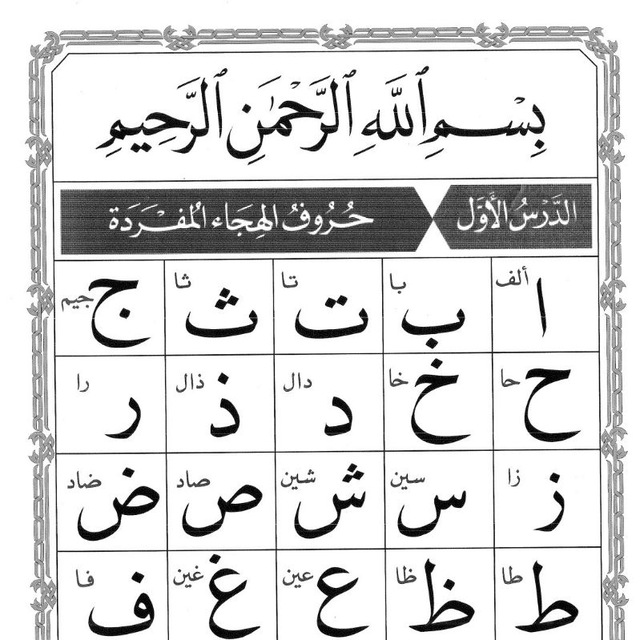 بِسْمِ ٱللَّهِ ٱلرَّحْمَٰنِ ٱلرَّحِيمِ
الدَّرْسُ الأَوَّل حُرُوفُ الهِجَاء المُفْرَدَة
ا ألف ب با ت تا ث ثا ج جيم
ح حا خ خا د دال ذ ذال ر را
ز زا س سين ش شين ص صاد ض ضاد
ط طا ظ ظا ع عين غ غين ف فا